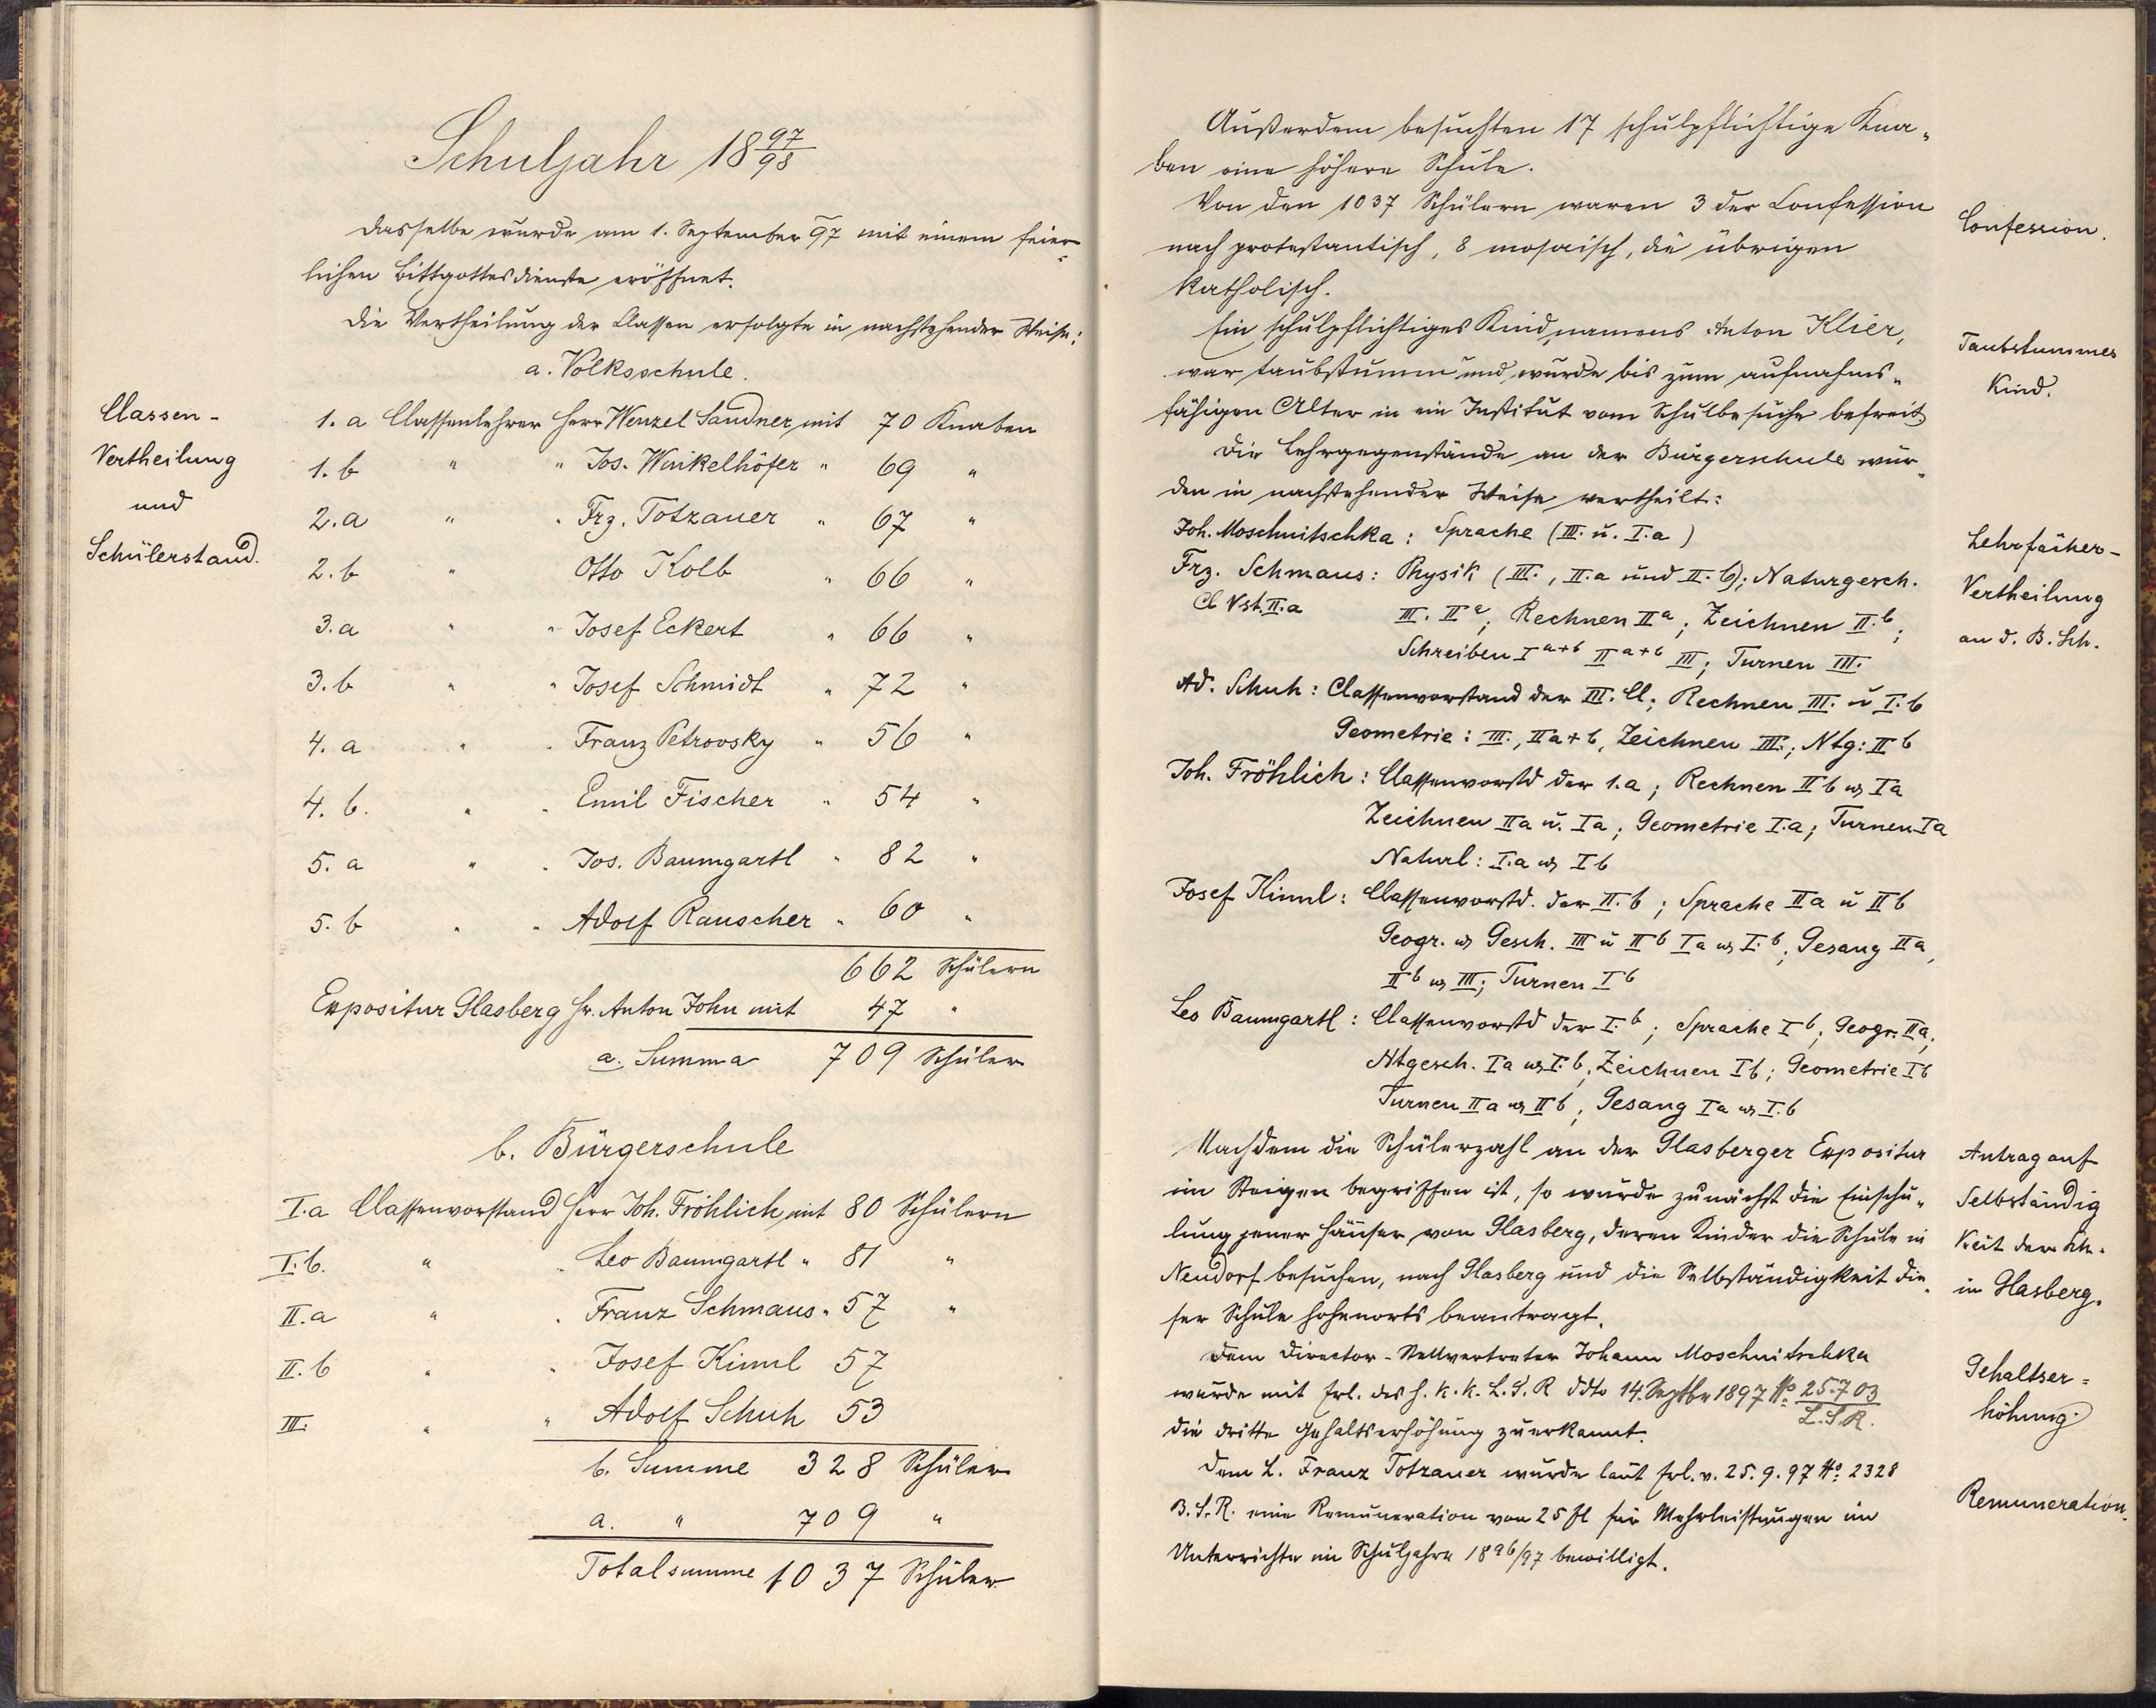 Schuljahr 18 97/98
Dasselbe wurde am 1. September 97 mit einem feier-
lichen Bittgottesdienste eröffnet.
Die Vertheilung der Classen erfolgte in nachstehender Weise:
a. Volksschule.
Classen-
Vertheilung
und
Schülerstand.
1. a Classenlehrer Herr Wenzel Sandner mit 70 Knaben
1. b " " Jos. Winkelhöfer " 69 "
2. a " " Frz. Totzauer " 67 "
2. b " Otto Kolb " 66 "
3. a " " Josef Eckert " 66 "
3. b " " Josef Schmidt " 72 "
4. a " " Franz Petrovsky " 56 "
4. b. " " Emil Fischer " 54 "
5. a " " Jos. Baumgartl " 82 "
5. b " " Adolf Rauscher " 60 "
662 Schülern
Expositur Glasberg Hr. Anton John mit 47 "
a. Summa 709 Schüler
b. Bürgerschule
I. a Classenvorstand Herr Joh. Fröhlich mit 80 Schülern
I. b. " " Leo Baumgartl " 81 "
II. a " " Franz Schmaus " 57 "
II. b " " Josef Kiml 57
III. " " Adolf Schuh 53
b. Summe 328 Schüler
a. " 709 "
Totalsumme 1037 Schüler
Außerdem besuchten 17 schulpflichtige Kna-
ben eine höhere Schule.
Von den 1037 Schülern waren 3 der Confession
nach protestantisch, 8 mosaisch, die übrigen
katholisch.
Confession.
Ein schulpflichtiges Kind, namens Anton Klier,
war taubstumm und wurde bis zum aufnahms-
fähigen Alter in ein Institut vom Schulbesuche befreit
Taubstummes
Kind.
Die Lehrgegenstände an der Bürgerschule wur-
den in nachstehender Weise vertheilt:
Joh. Moschnitschka: Sprache (III. u. I. a)
Frz. Schmaus: Physik (III., II. a und II. b); Naturgesch.
Cl Vst. II. a III. II a; Rechnen II a; Zeichnen II. b;
Schreiben I a+b II a+b III; Turnen III.
Lehrfächer-
Vertheilung
an d. B. Sch.
Ad. Schuh: Classenvorstand der III. Cl; Rechnen III. u I. b
Geometrie: III., II a+b, Zeichnen III.; Ntg: II b
Joh. Fröhlich: Classenvorstd der 1. a; Rechnen II b u I a
Zeichnen II a u. I a; Geometrie I. a; Turnen I a
Naturl: I. a u I b
Josef Kiml: Classenvorstd. der II. b; Sprache II a u II b
Geogr. u Gesch. III u II b I a u I. b; Gesang II a,
II b u III; Turnen I b
Leo Baumgartl: Classenvorstd der I. b; Sprache I b; Geogr. II a;
Ntgesch. I a u I. b; Zeichnen I b; Geometrie I b
Turnen II a u II b; Gesang I a u I. b
Nachdem die Schülerzahl an der Glasberger Expositur
im Steigen begriffen ist, so wurde zunächst die Einschu-
lung jener Häuser von Glasberg, deren Kinder die Schule in
Neudorf besuchen, nach Glasberg und die Selbständigkeit die-
ser Schule hohenorts beantragt.
Antrag auf
Selbständig
keit der Sch.
in Glasberg.
Dem Director-Stellvertreter Johann Moschnitschka
wurde mit Erl. des h. k. k. L. S. R ddto 14. Septbr 1897 No 25.703 / L. S. R.
die dritte Gehaltserhöhung zuerkannt.
Gehaltser=
höhung.
Dem L. Franz Totzauer wurde laut Erl. v. 25. 9. 97 No: 2328
B. S. R. eine Remuneration von 25 fl für Mehrleistungen im
Unterrichte im Schuljahre 1896/97 bewilligt.
Remuneration.